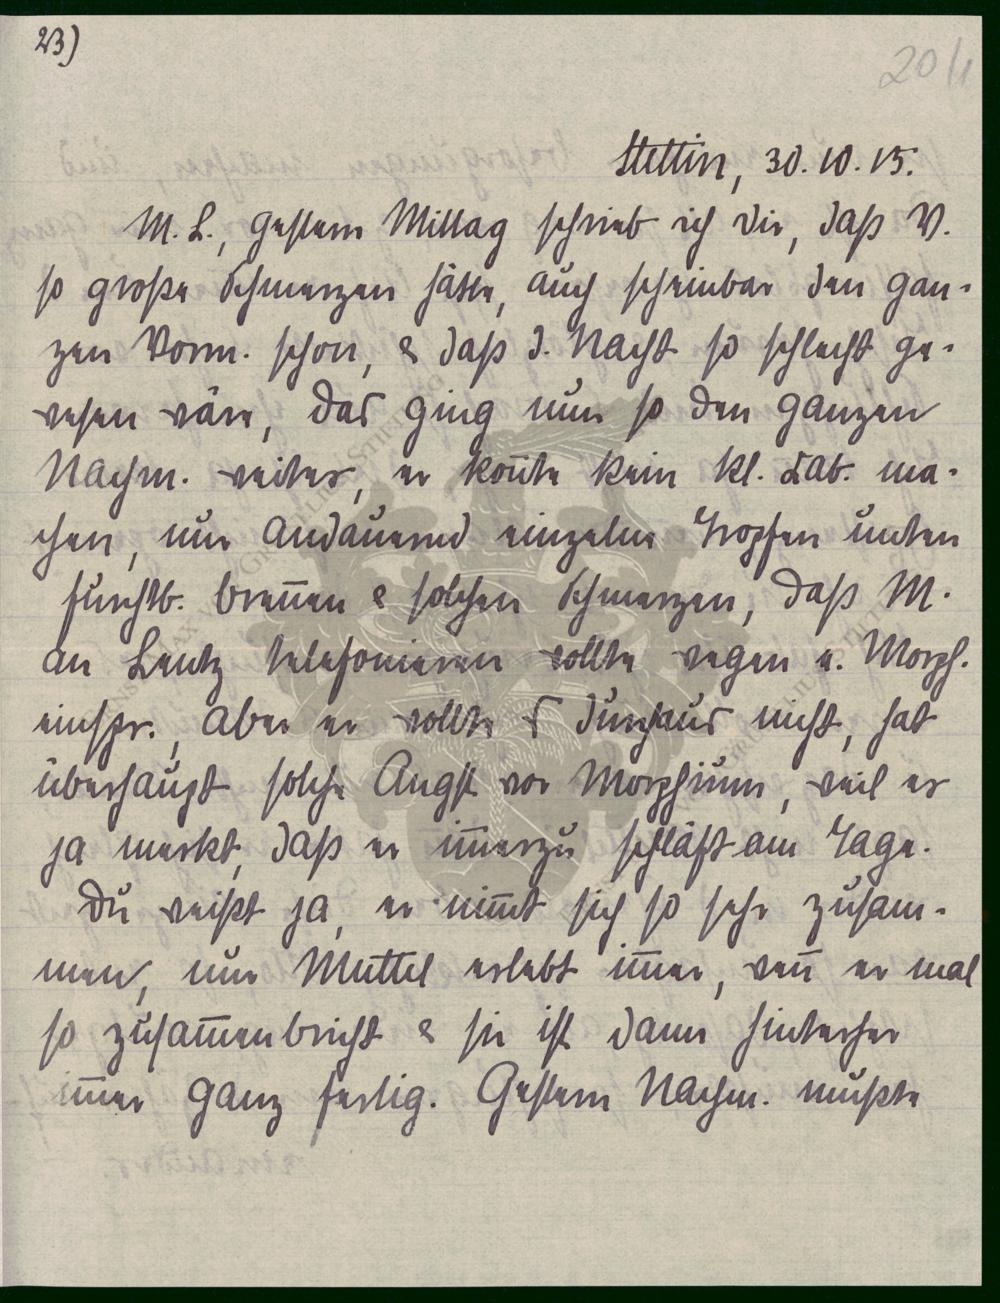 23)
20/II
Stettin, 30.10.15.
M. L., gestern Mittag schrieb ich dir, daß V.
so große Schmerzen hätte, auch scheinbar den gan-
zen Vorm. schon, & daß d. Nacht so schlecht ge-
wesen wäre, das ging nun so den ganzen
Nachm. weiter, er kom̄te kein kl. Lab. ma-
chen, nur andauernd einzelne Tropfen unten
furchtb. bren̄en & solchen Schmerzen, daß M.
an Lentz telefonieren wollte wegen e. Morph.
einspr., aber er wollte durchaus nicht, hat
überhaupt solche Angst vor Morphium, weil er
ja merkt, daß er im̄erzu schläft am Tage.
Du weißt ja, er nim̄t sich so sehr zusam-
men, nur Muttel erlebt im̄er, wen̄ er mal
so zusam̄enbricht & sie ist dann hinterher
im̄er ganz fertig. Gestern Nachm. mußte